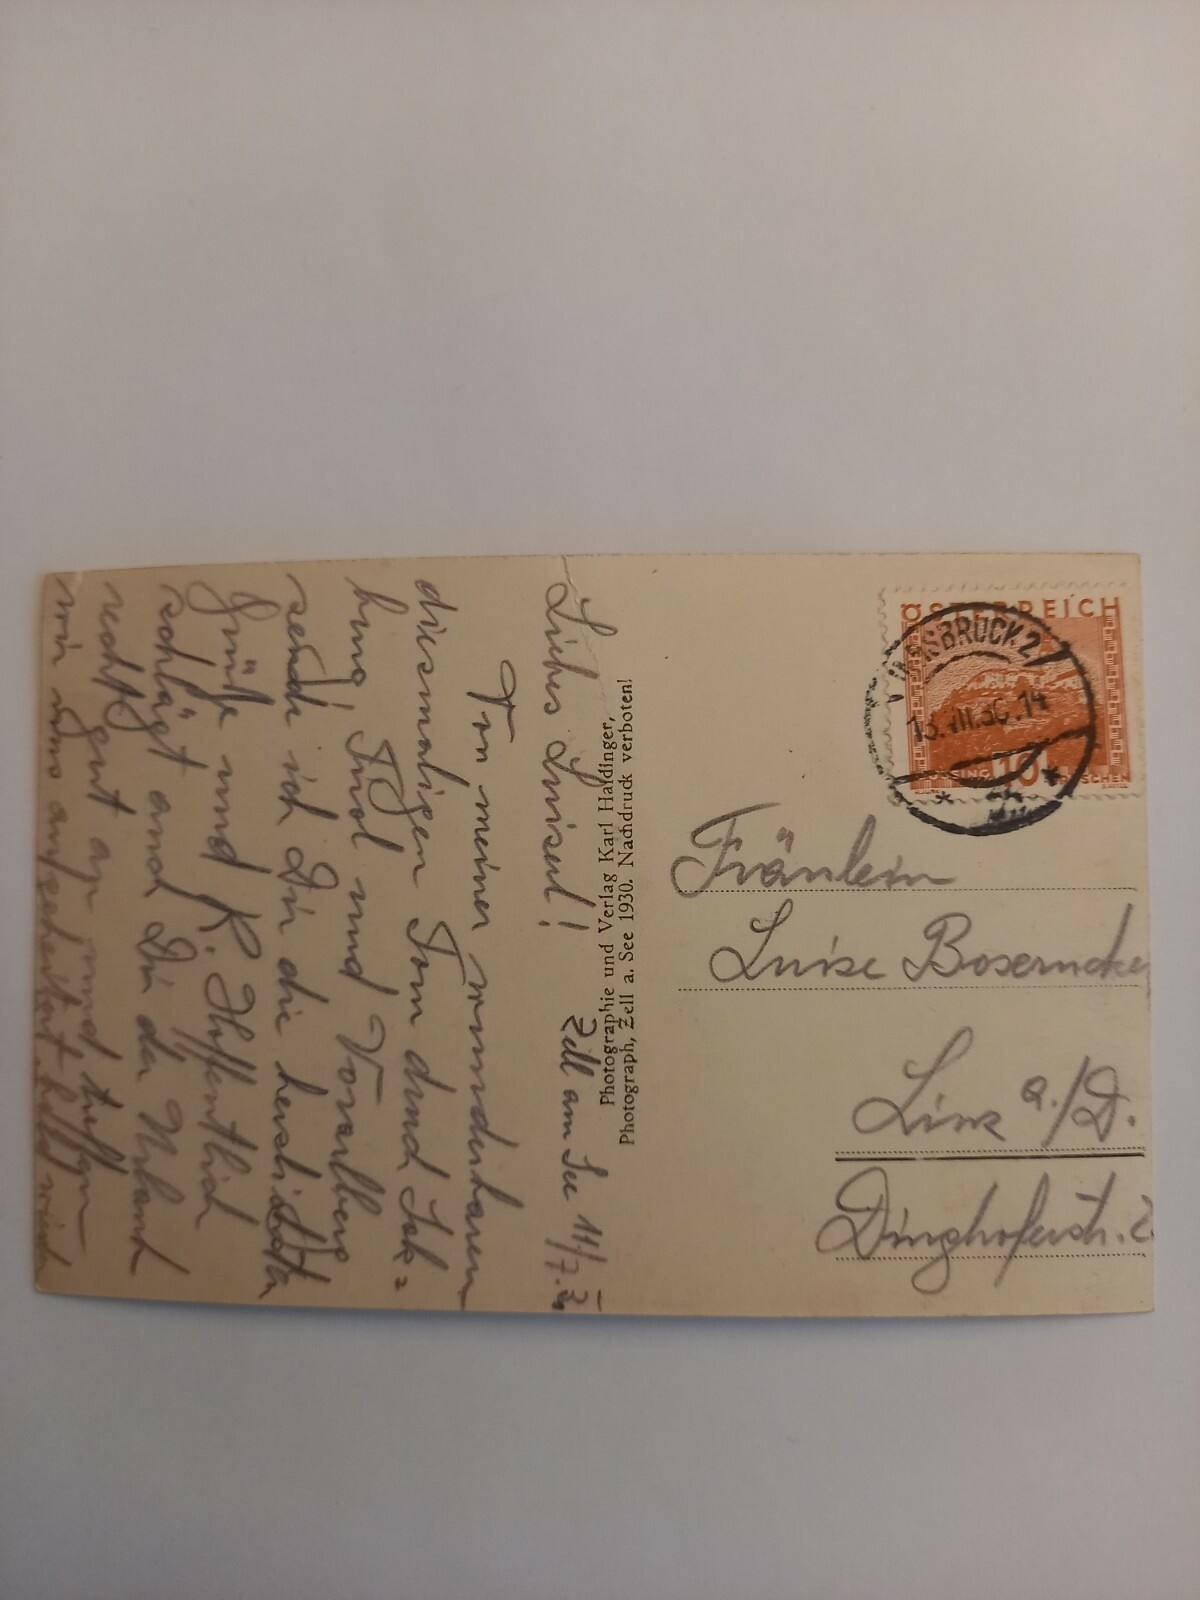 Liebes Luiserl! Zell am See 11/7.
Von meiner wunderbaren
diesmaligen Tour durch Salz=
burg, Tirol und Vorarlberg
sende ich Dir die herzlichsten
Grüße und K. Hoffentlich
schlägt auch Dir der Urlaub
recht gut an und treffen
wir uns
Photographie und Verlag Karl Haidinger,
Photograph, Zell a. See 1930. Nachdruck verboten!
ÖSTERREICH
INNSBRUCK 2
13.VII.30.14
GÜSSING 10 GROSCHEN
Fräulein
Luise
Linz a./D.
Dinghoferstr.